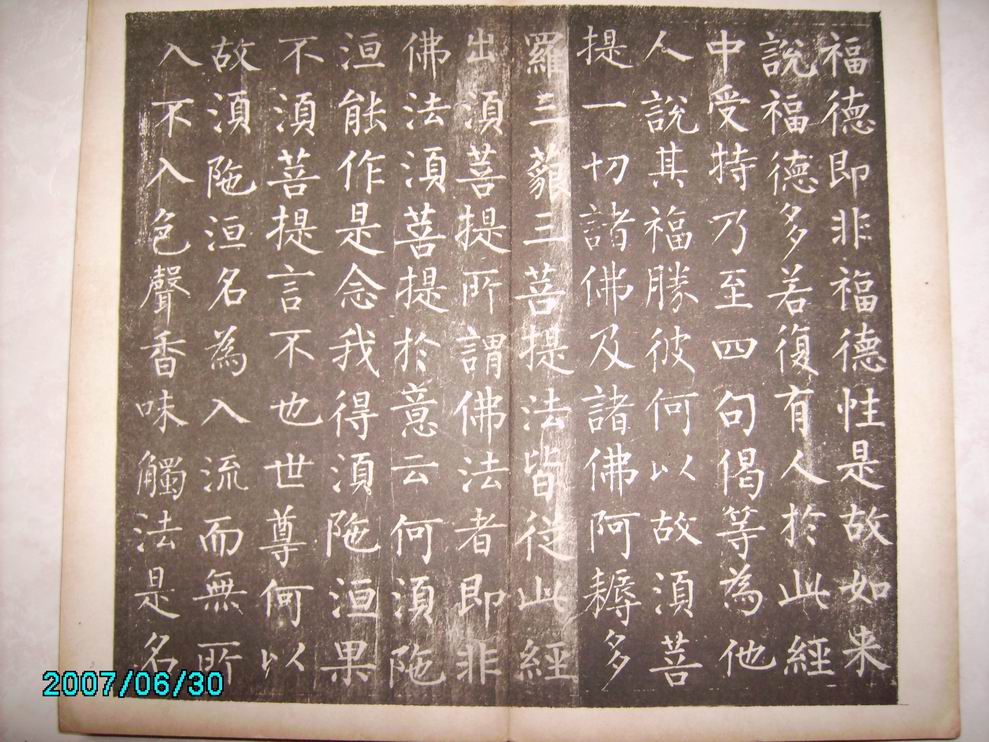 福德即非福德性是故如来
說福德多若復有人於此經
中受持乃至四句偈等為他
人說其福勝彼何以故湏菩
提一切諸佛及諸佛阿耨多
羅三藐三菩提法皆從此經
出湏菩提所謂佛法者即非
佛法湏菩提於意云何湏陁
洹能作是念我得湏陁洹果
不湏菩提言不也世尊何以
故湏陁洹名為入流而無所
入不入色聲香味觸法是名
2007/06/30